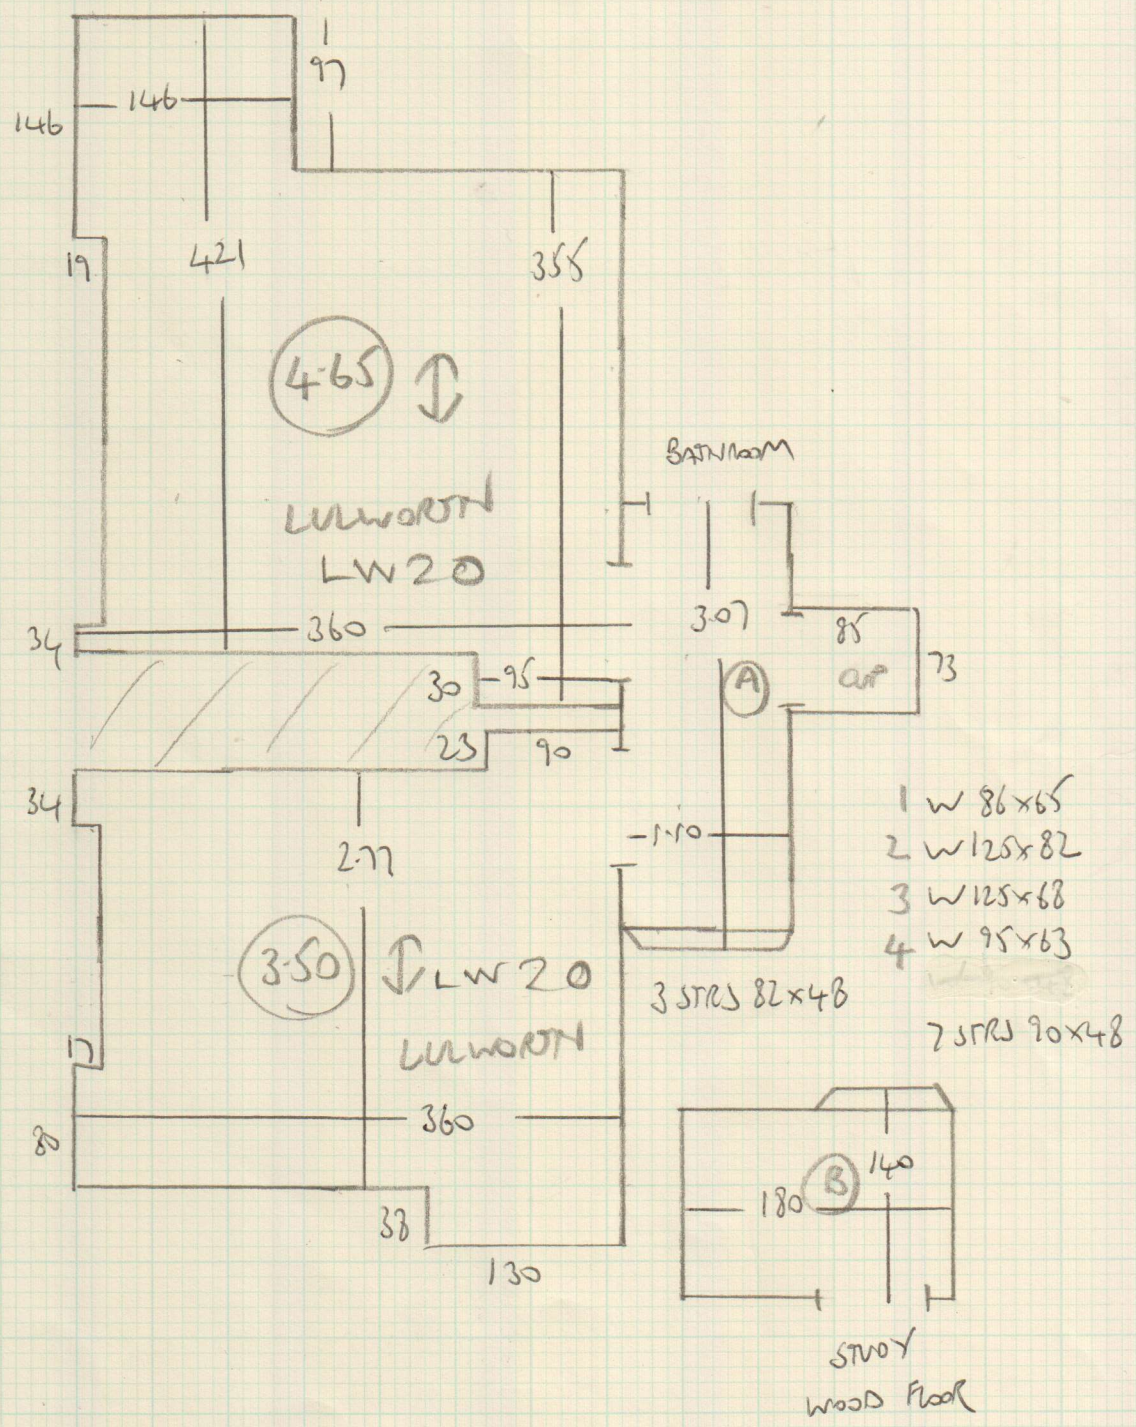 97
146
146
19
421
355
4.65
LULWORTH
LW20
BATHROOM
34
360
3.07
85
CUP
73
30
95
A
23
90
34
2.77
1.10
1 W 86×65
2 W 125×82
3 W 125×68
4 W 95×63
3.50
LW20
LULWORTH
3 STRS 82×48
7 STRS 90×48
17
360
80
38
130
140
180
B
STUDY
WOOD FLOOR